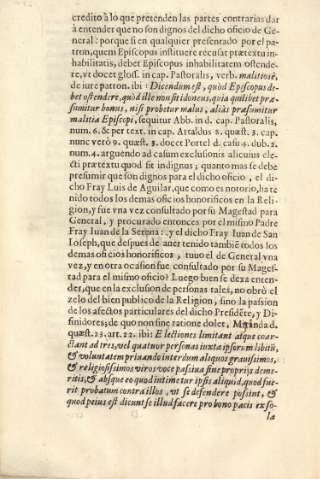 credito à lo que pretenden las partes contrarias dar
à entender que no son dignos del dicho oficio de Ge-
neral: porque si en qualquier presentado por el pa-
tron, quem Episcopus instituere recusat prætextu in-
habilitatis, debet Episcopus inhabilitatem ostende-
re, vt docet gloss. in cap. Pastoralis, verb. malitiosè,
de iure patron. ibi: Dicendum est, quòd Episcopus de-
bet ostendere, quòd ille non sit idoneus, quia quilibet præ-
sumitur bonus, nisi probetur malus, aliàs præsumitur
malitia Episcopi, sequitur Abb. in d. cap. Pastoralis,
num. 6. & per text. in cap. Artaldus 2. quæst. 3. cap.
nunc verò 9. quæst. 3. docet Portel d. casu 4. dub. 2.
num. 4. arguendo ad casum exclusionis alicuius ele-
cti prætextu quod sit indignus; quanto mas se debe
presumir que son dignos para el dicho oficio, el di-
cho Fray Luis de Aguilar, que como es notorio, ha te
nido todos los demas oficios honorificos en la Reli-
gion, y fue vna vez consultado por su Magestad para
General, y procurado entonces por el mismo Padre
Fray Iuan de la Serina: y el dicho Fray Iuan de San
Ioseph, que despues de auer tenido tambiē todos los
demas oficios honorificos, tuuo el de General vna
vez, y en otra ocasion fue consultado por su Mages-
tad para el mismo oficio? Luego bien se dexa enten-
der, que en la exclusion de personas tales, no obrò el
zelo del bien publico de la Religion, sino la passion
de los afectos particulares del dicho Presidēte, y Di-
finidores; de quo non sine ratione dolet, Miranda d.
quæst. 23. art. 22. ibi: Electiones limitant atque coar-
ctant ad tres, vel quatuor personas iuxta ipsorum libitū,
& voluntatem priuando interdum aliquos grauissimos,
& religiosissimos viros voce passiua sine proprijs deme-
ritis, & absque eo quod intimetur ipsis aliquid, quod fue-
rit probatum contra illos, vt se defendere possint, &
quod peius est dicunt se illud facere pro bono pacis ex so-
la